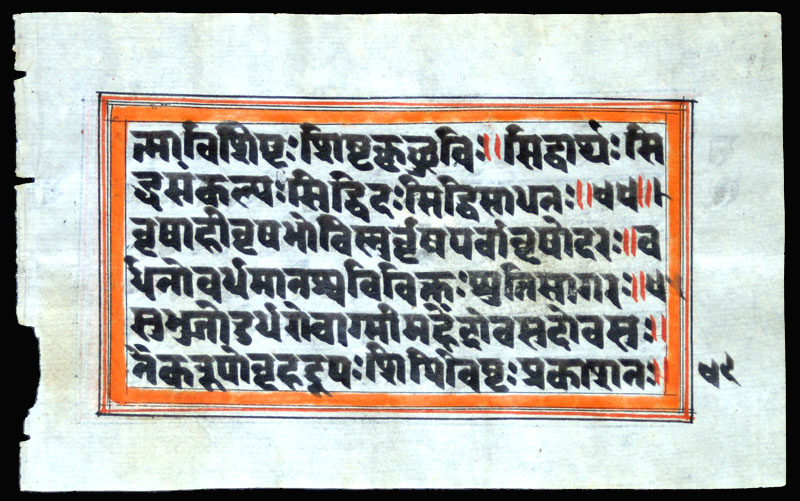 त्मा विशिष्टः शिष्टकृच्छुचिः॥ सिद्धार्थः सि
द्धसंकल्पः सिद्धिदः सिद्धिसाधनः॥
वृषाही वृषभो विष्णुर्वृषपर्वा वृषोदरः॥ व
र्धनो वर्धमानश्च विविक्तः श्रुतिसागरः॥
सुभुजो दुर्धरो वाग्मी महेंद्रो वसुदो वसुः॥
नैकरूपो बृहद्रूपः शिपिविष्टः प्रकाशनः॥